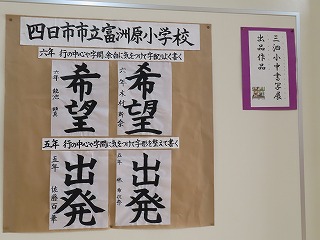 四日市市立富洲原小学校
六年 行の中心や字間、余白に気をつけて字配りよく書く
希望
六年
希望
六年
五年 行の中心や字間に気をつけて字形を整えて書く
出発
五年
出発
五年 佐藤百華
三泗小中書写展
出品作品